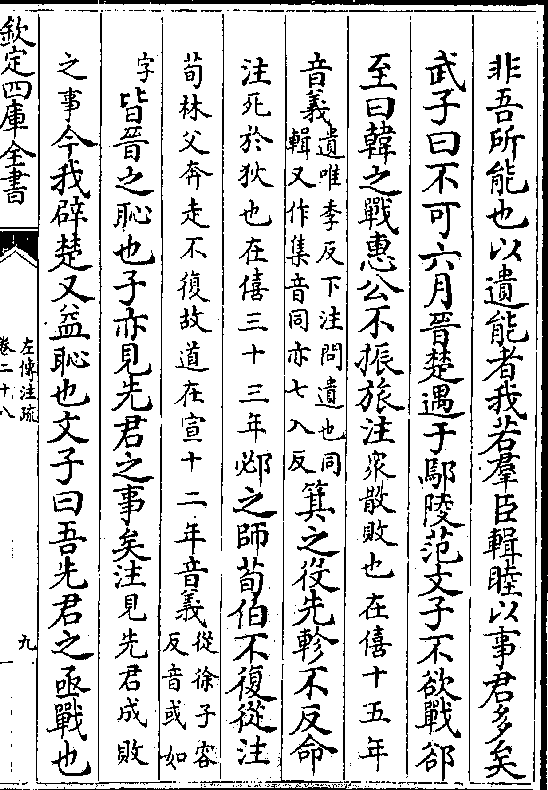 非吾所能也以遺能者我若羣臣輯睦以事君多矣
武子曰不可六月晉楚遇于鄢陵范文子不欲戰郤
至曰韓之戰惠公不振旅注衆散敗也在僖十五年
音義遺唯季反下注問遺也同
輯又作集音同亦七入反箕之役先軫不反命
注死於狄也在僖三十三年邲之師荀伯不復從注
荀林父奔走不復故道在宣十二年音義從徐子容
反音或如
字皆晉之恥也子亦見先君之事矣注見先君成敗
之事今我辟楚又益恥也文子曰吾先君之亟戰也
欽定四庫全書
左傳注疏
卷二十八
九